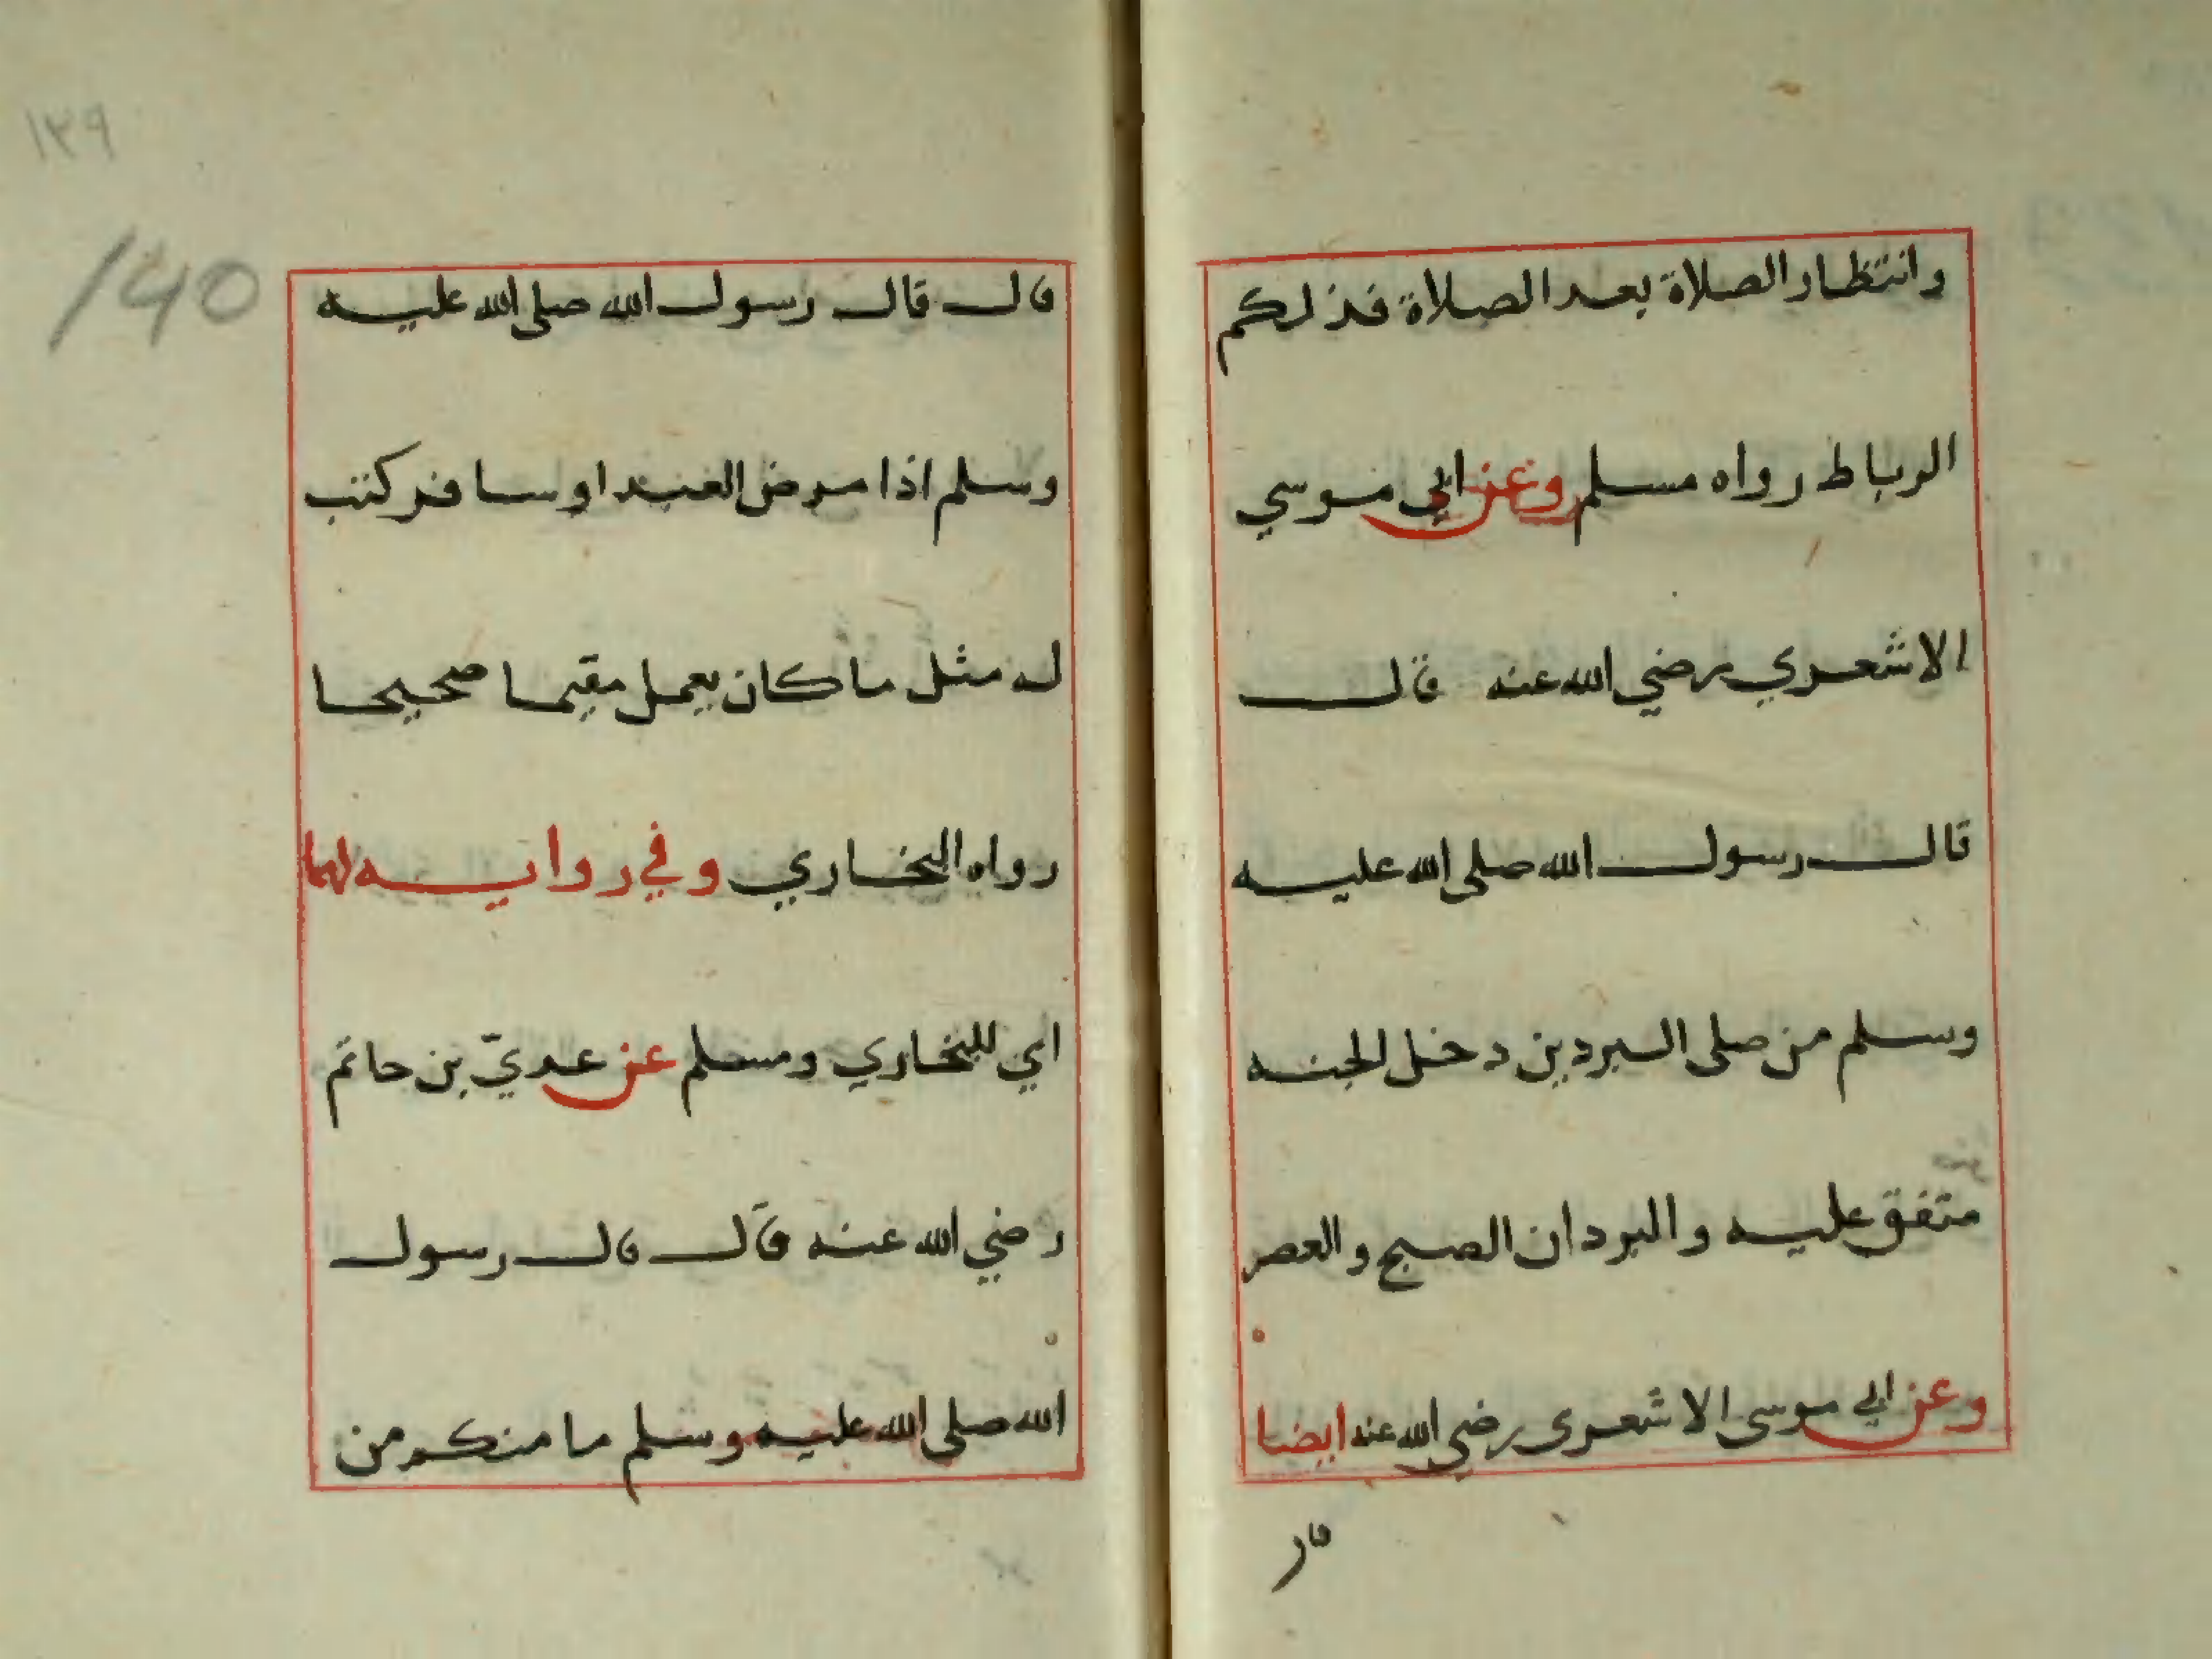 وانتظار الصلاة بعد الصلاة فذلكم
الرباط رواه مسلم وعن ابي موسي
الاشعري رضي الله عنه قال
قال رسول الله صلى الله عليه
وسلم من صلى البردين دخل الجنه
متفق عليه والبردان الصبح والعصر
وعن ابي موسى الاشعرى رضي الله عنه ايضا
قا‍ل
١٣٩
140
قال قال رسول الله صلى الله عليه
وسلم اذا مرض العبد او سافر كتب
له مثل ما كان يعمل مقيما صحيحا
رواه البخاري وفي روايه لهما
اي للبخاري ومسلم عن عديّ بن حاتم
رضي الله عنه قال قال رسول
الله صلى الله عليه وسلم ما منكم من